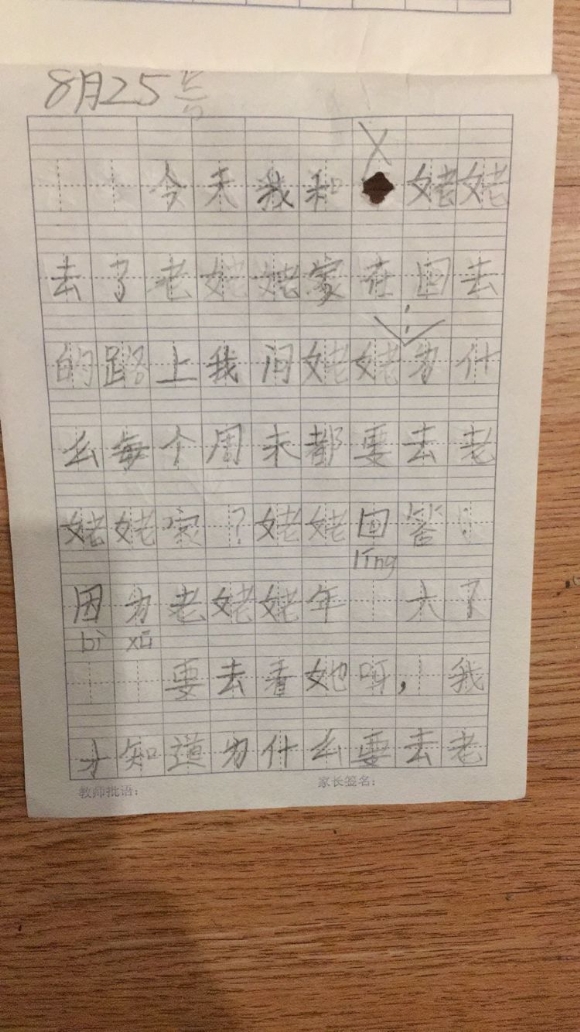 8月25号
今天我和姥姥
去了老姥姥家在回去
的路上我问姥姥:为什
么每个周末都要去老
姥姥家?姥姥回答:
líng
因为老姥姥年 大了
bì xū
要去看她呀,我
才知道为什么要去老
教师批语: 家长签名: